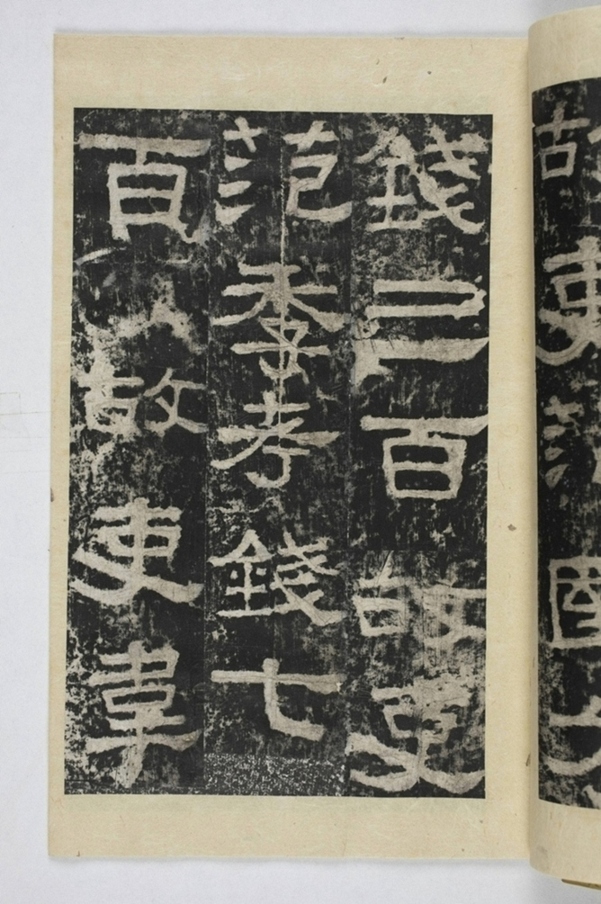 故吏范國
錢三百故吏
范季考錢七
百故吏韋